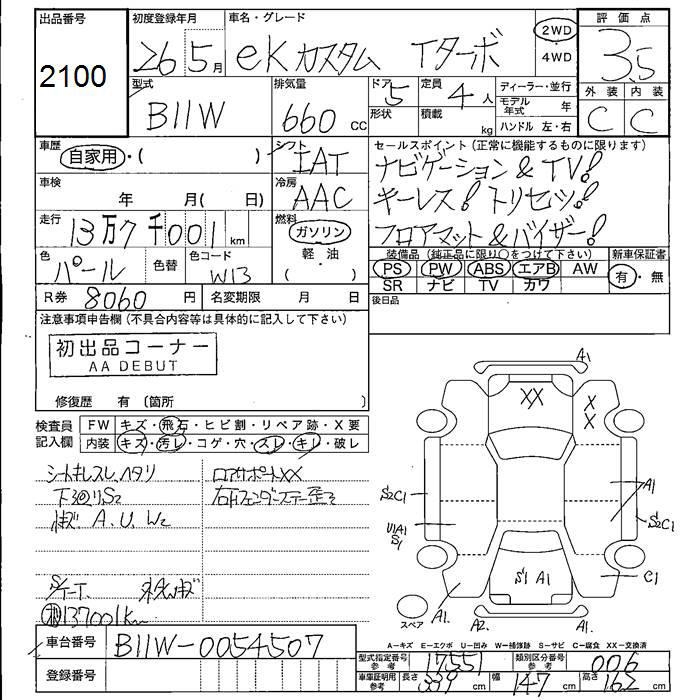 出品番号 初度登録年月 車名・グレード 評価点
2100 26 5月 eKカスタム Tターボ 2WD ・4WD 3.5
型式 排気量 ドア 5 形状 定員 4人 積載 kg ディーラー・並行 外装 内装
B11W 660 cc モデル年式 年 C C
ハンドル 左・右
車歴 自家用・( ) シフト IAT セールスポイント(正常に機能するものに限ります)
ナビゲーション&TV!
車検 年 月( 日) 冷房 AAC キーレス!トリセツ!
走行 13万7千001km 燃料 ガソリン フロアマット&バイザー!
軽・油
( )
色 パール 色替 色コード W13 装備品(純正品に限り○をつけて下さい) 新車保証書
PS PW ABS エアB AW 有・無
SR ナビ TV カワ
R券 8060円 名変期限 月 日 後日品
注意事項申告欄(不具合内容等は具体的に記入して下さい)
初出品コーナー
AA DEBUT
修復歴 有〔箇所 〕
検査員記入欄 FW キズ・飛石・ヒビ割・リペア跡・X要
内装 キズ・汚レ・コゲ・穴・スレ・キレ・破レ
シートキレスレ、ヘタリ ロアサポートXX
下廻りS2 右Fフェンダーステー歪2
A.U.W2
137001km
A1
XX
X
X
A1
S2C1
S2C1
U1A1
S1
S1 A1
C1
A1.
A2.
A1
スペア
車台番号 B11W-0054507
登録番号
A-キズ E-エクボ U-凹み W-補修跡 S-サビ C-腐食 XX-交換済
型式指定番号 参考 17551 類別区分番号 参考 006
車庫証明用 参考 長さ 339cm 幅 147cm 高さ 162cm